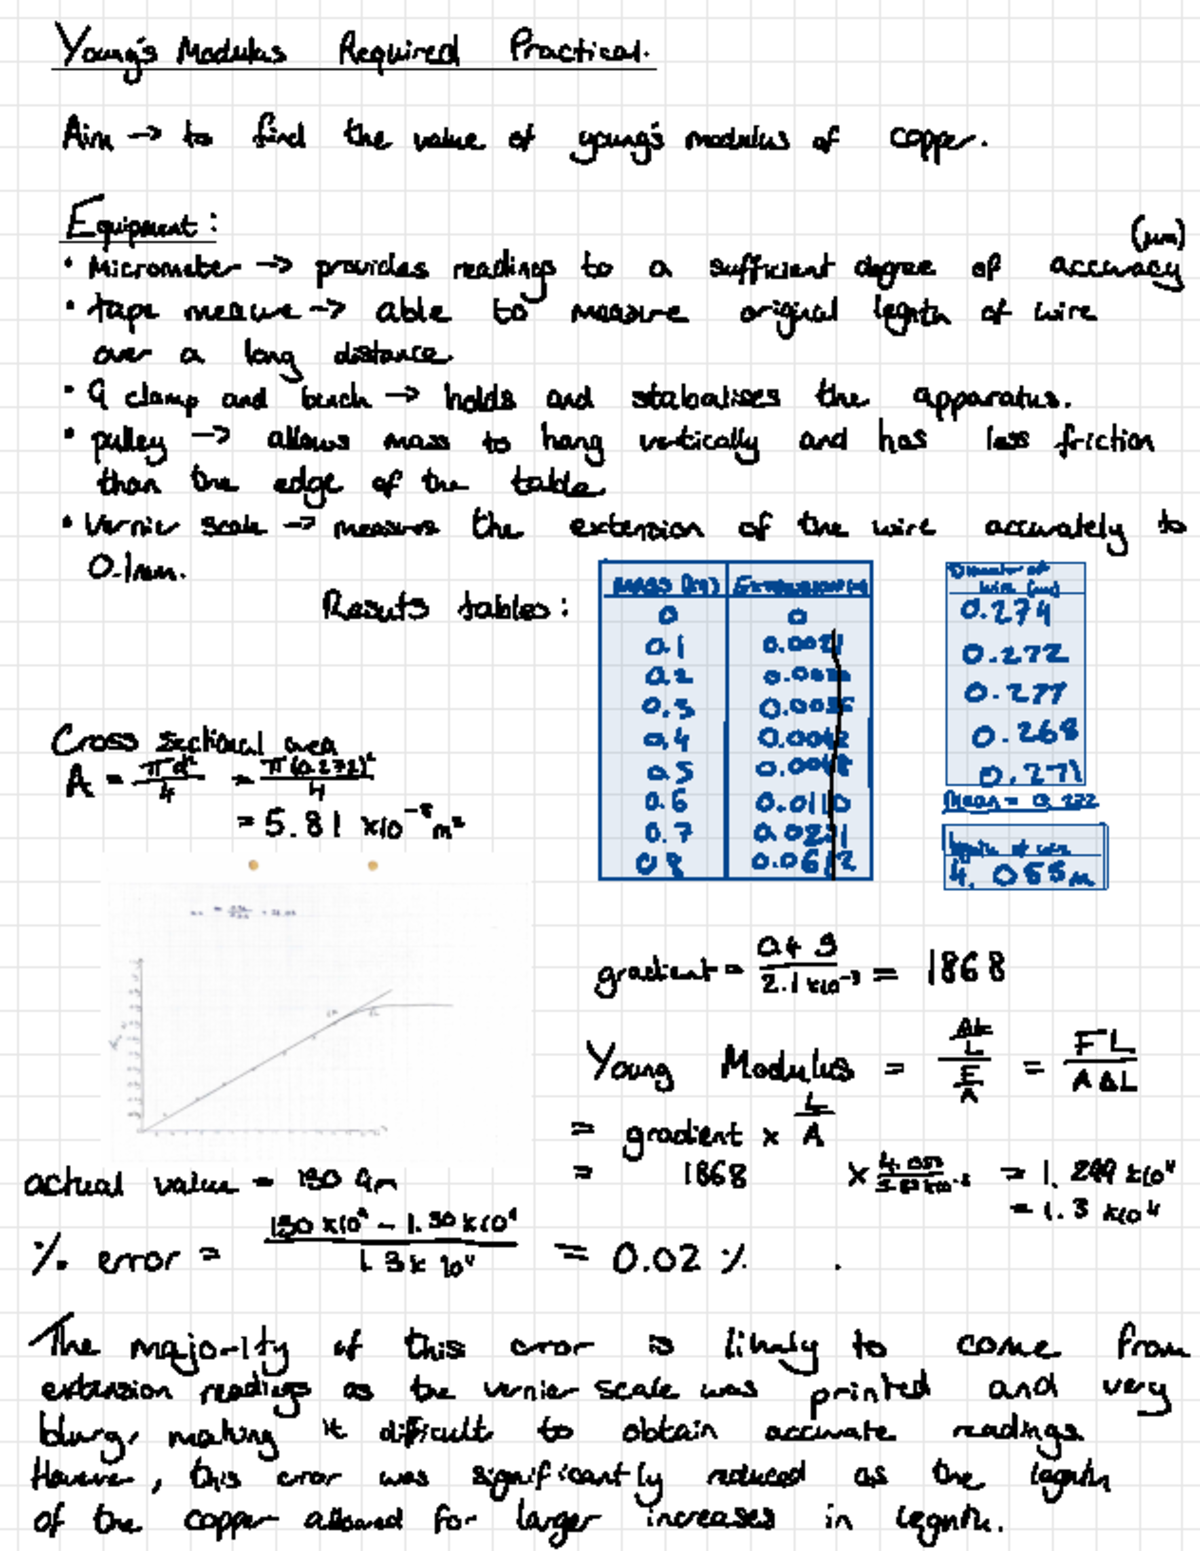 Young's Modulus Required Practical.
Aim → to find the value of young's modulus of copper.
Equipment:
(µm)
• Micrometer → provides readings to a sufficient degree of accuracy
• tape measure → able to measure original legnth of wire
over a long distance.
• G clamp and bench → holds and stabalises the apparatus.
• pulley → allows mass to hang vertically and has less friction
than the edge of the table
• Vernier scale → measures the extension of the wire accurately to
0.1mm.
Results tables:
Mass (kg) Extension (m)
0 0
0.1
0.2
0.3
0.4
0.5
0.6
0.7
0.8
Diameter of
wire (mm)
0.274
0.272
0.277
0.268
0.271
Mean = 0.272
length of wire
4.055m
Cross sectional area
A = πd²/4 = π(0.272)²/4
= 5.81 x10⁻⁸ m²
gradient = /2.1 x10⁻³ = 1868
Young Modulus = = FL/AΔL
= gradient x L/A
= 1868 x = 1.299 x10⁴
= 1.3 x10⁴
actual value = 130
% error = = 0.02 %
The majority of this error is likely to come from
extension readings as the vernier scale was printed and very
blurry making it difficult to obtain accurate readings.
However, this error was significantly reduced as the legnth
of the copper allowed for larger increases in legnth.